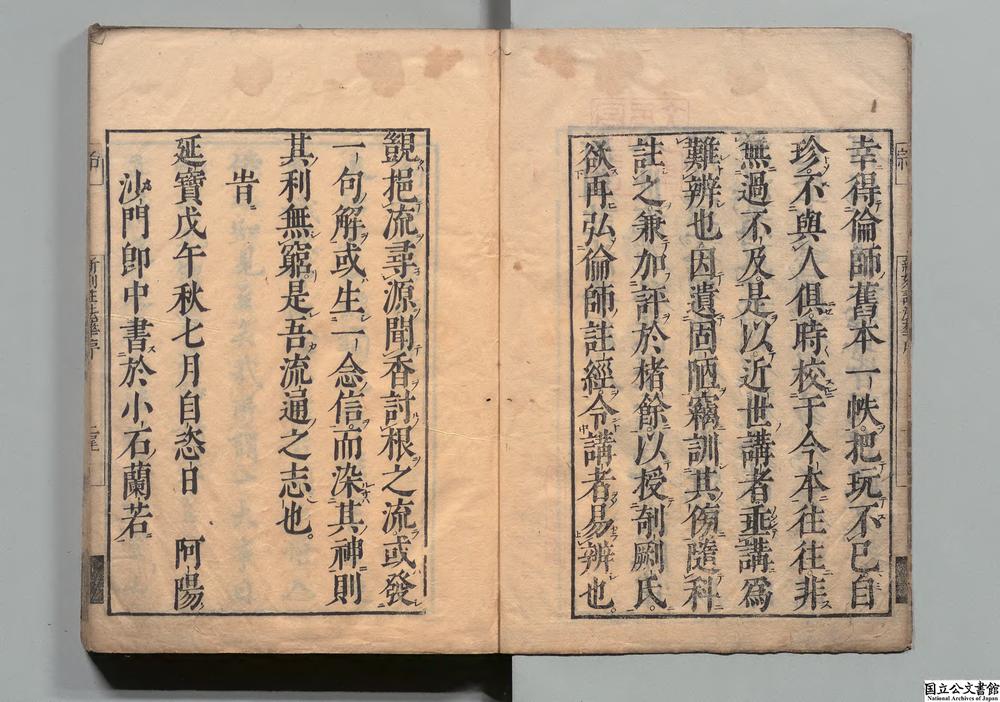 幸得倫師舊本一帙把玩不已自
珍不與人俱時校于今本往往非
無過不及是以近世講者乖講爲
難辨也因遺固陋竊訓其傍隨科
註之兼加評於楮餘以授剞劂氏
欲再弘倫師註經令講者易辨也
覩挹流尋源聞香討根之流或發
一句解或生一念信而染其神則
其利無窮是吾流通之志也
旹
延寶戊午秋七月自恣日 阿陽
沙門卽中書於小石蘭若
国立公文書館
National Archives of Japan